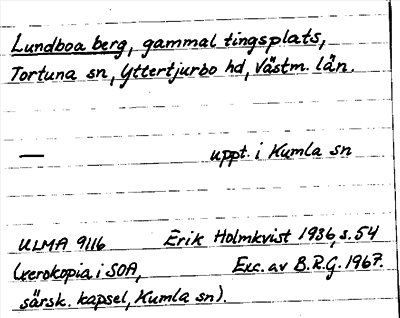 Lundboa berg, gammal tingsplats,
Tortuna sn, Yttertjurbo hd, Västm. län.
— uppt. i Kumla sn
ULMA 9116 Erik Holmkvist 1936, s. 54
(xerokopia i SOA, Exc. av B.R.G. 1967.
särsk. kapsel, Kumla sn).